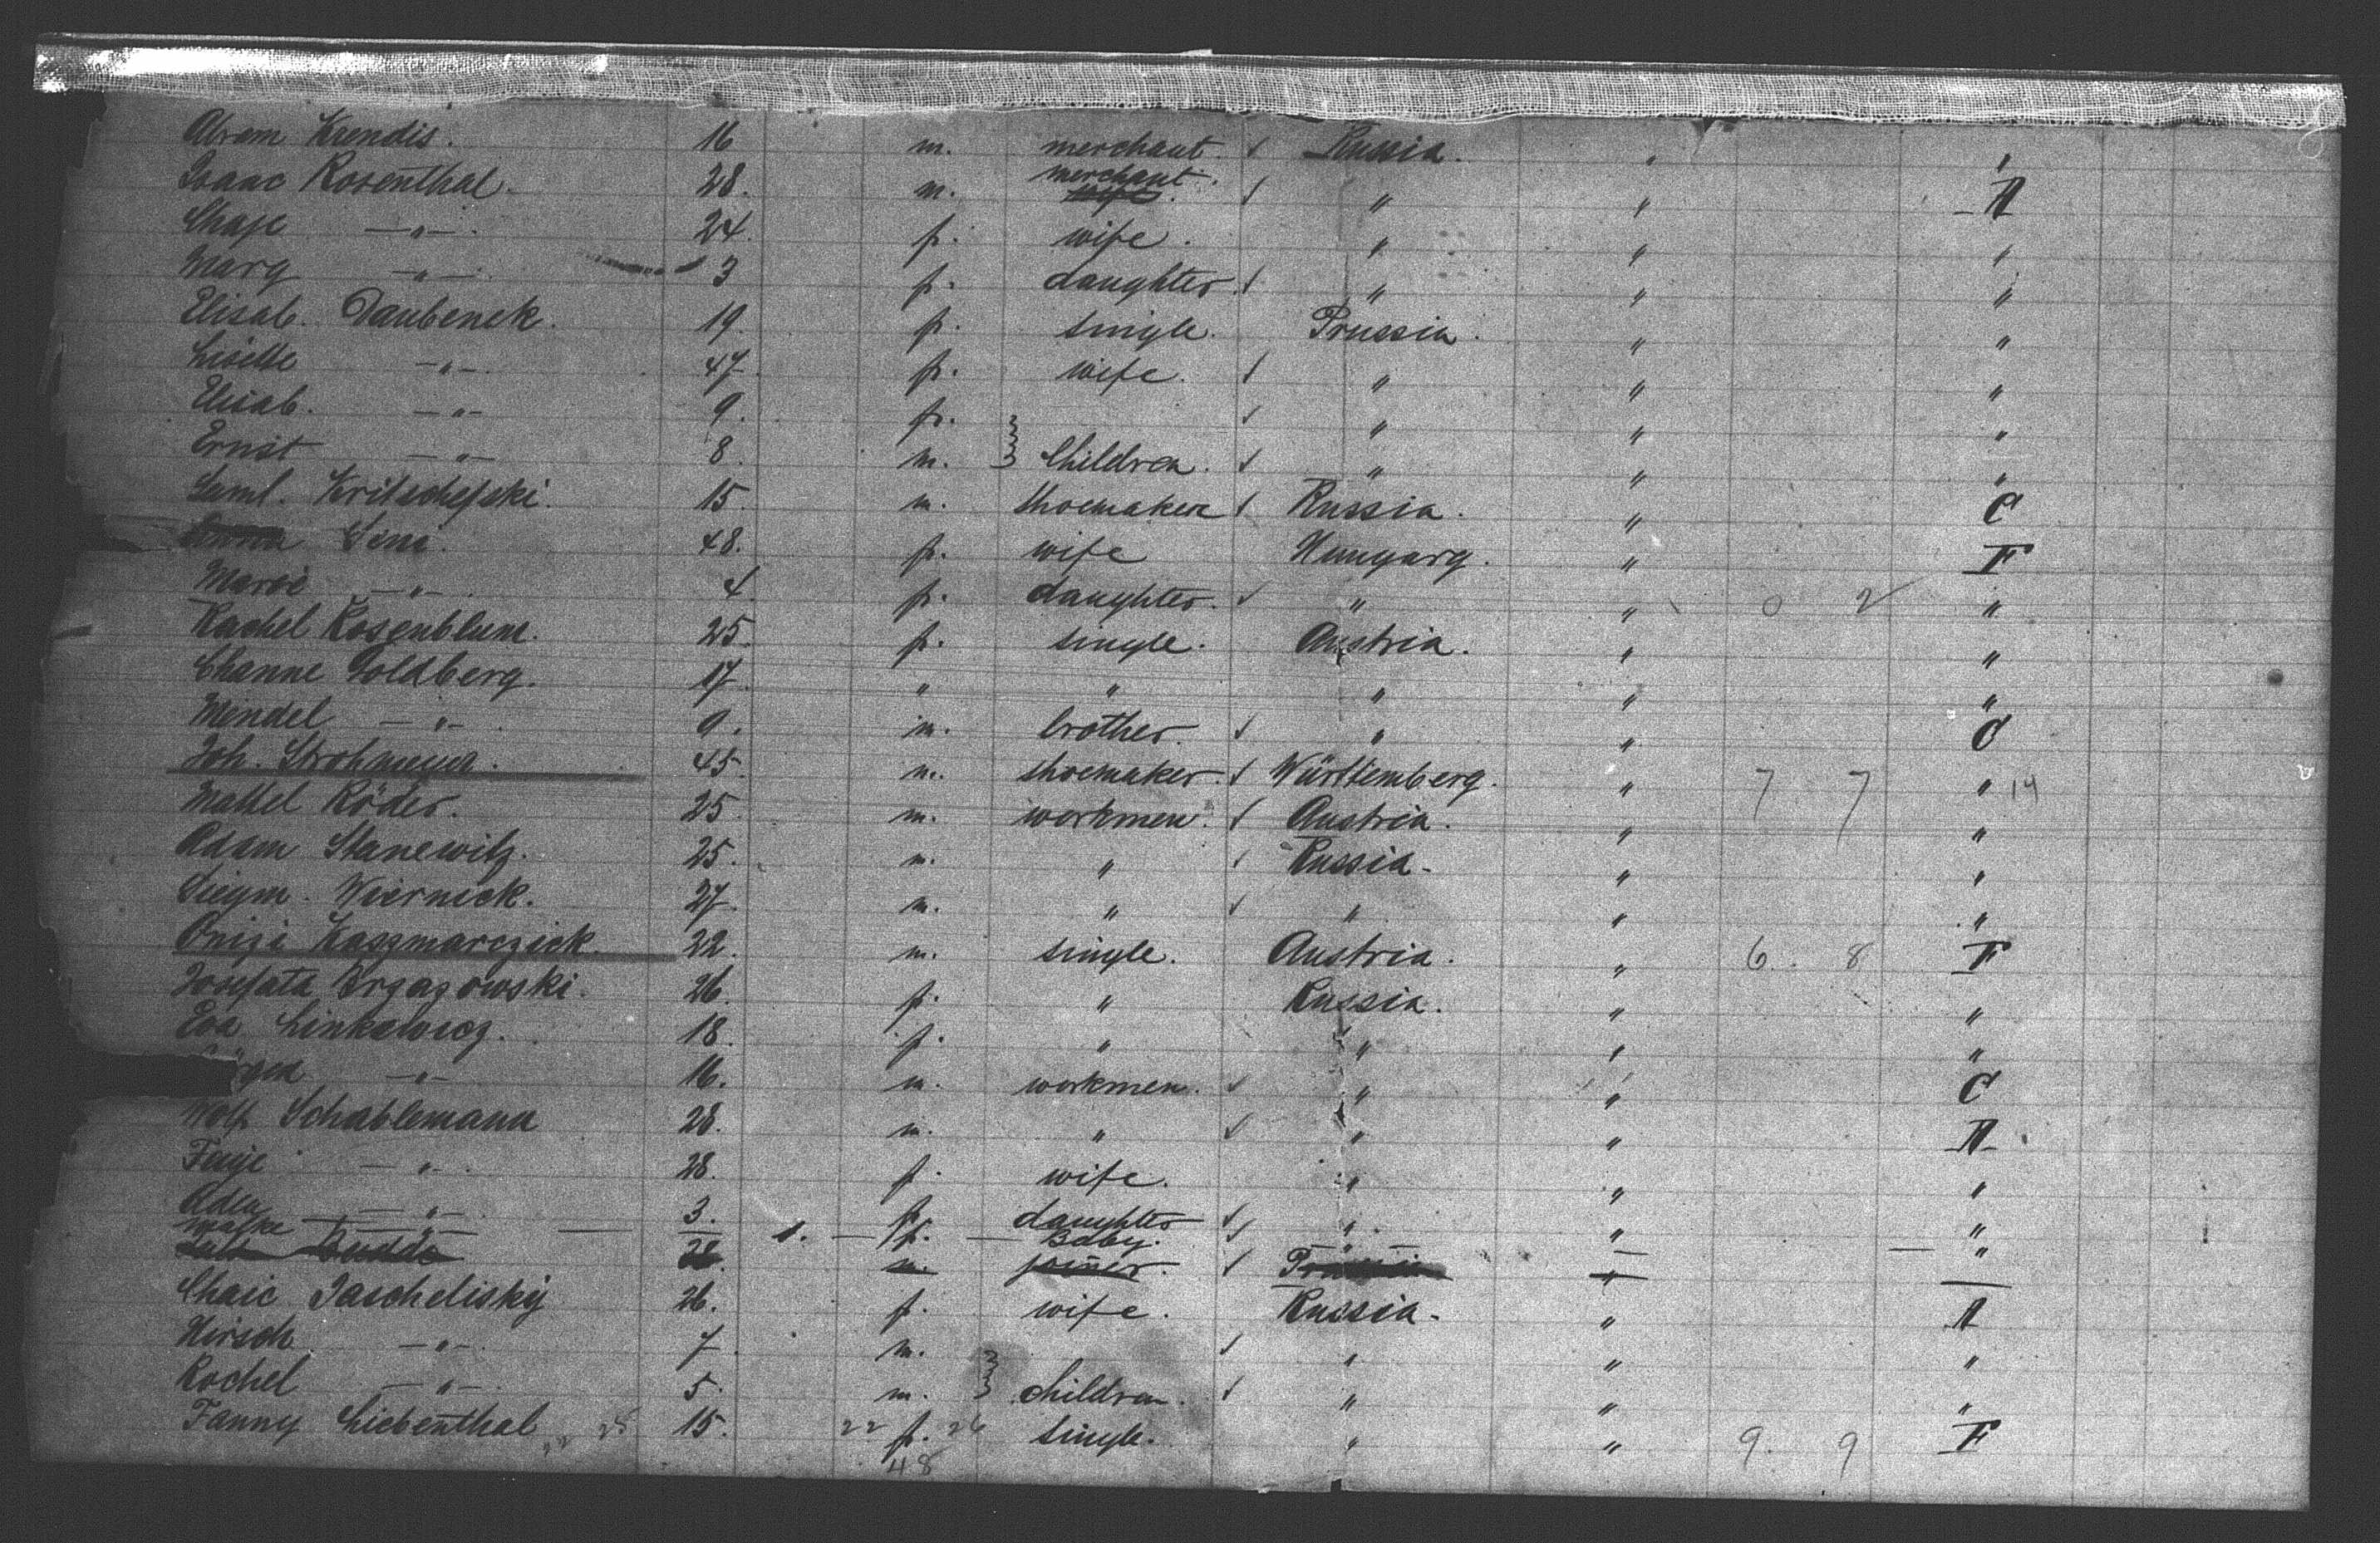 Abram Krendis. 16 m. merchant. ✓ Russia. " "
merchant.
Isaac Rosenthal. 28. m. wife. ✓ " " A
Chaje —"— . 24. f. wife. " " "
Marg —"— . 3 f. daughter. ✓ " " "
Elisab. Daubenek. 19. f. single. Prussia. " "
Lisette —"— . 47. f. wife. ✓ " " "
Elisab. —"— 9. f. ✓ " " "
Ernst —"— 8. m. } Children. ✓ " " "
Saml. Kritschefski. 15. m. shoemaker ✓ Russia. " C
48. f. wife Hungary. " F
Marie —"— . 4. f. daughter. ✓ " " 0 2 "
Rachel Rosenblum. 25. f. single. Austria. " "
Channe Goldberg. 17. " " " " "
Mendel —"— . 9. m. brother. ✓ " " C
Joh. Strohmeyer. 45. m. shoemaker. ✓ Württemberg. " 7 7 " 14
Mattel Röder. 25. m. workmen. ✓ Austria. " "
Adam Stanewitz. 25. m. " ✓ Russia. " "
Siegm. Wiernick. 27. m. " ✓ " " "
Kaszmarczick. 22. m. single. Austria. " 6. 8 F
Josefata 26. f. " Russia. " "
Eva Linkewicz. 18. f. " " " "
—"— 16. m. workmen. ✓ " " C
Wolf Schablemann 28. m. " ✓ " " A
Feige —"— . 28. f. wife. " " "
—"— . 3. f. daughter ✓ " " "
—"— — 1. — f. — Baby. ✓ " — "
Budde 28. m. joiner. ✓ Prussia "
Chaie Jaschelisky 26. f. wife. Russia. " A
Hirsch —"— . 7. m. ✓ " " "
Rochel —"— . 5. m. } children. ✓ " " "
Fanny Liebenthal 22 25 15. 22 f. 26 single. " " 9. 9 F
48